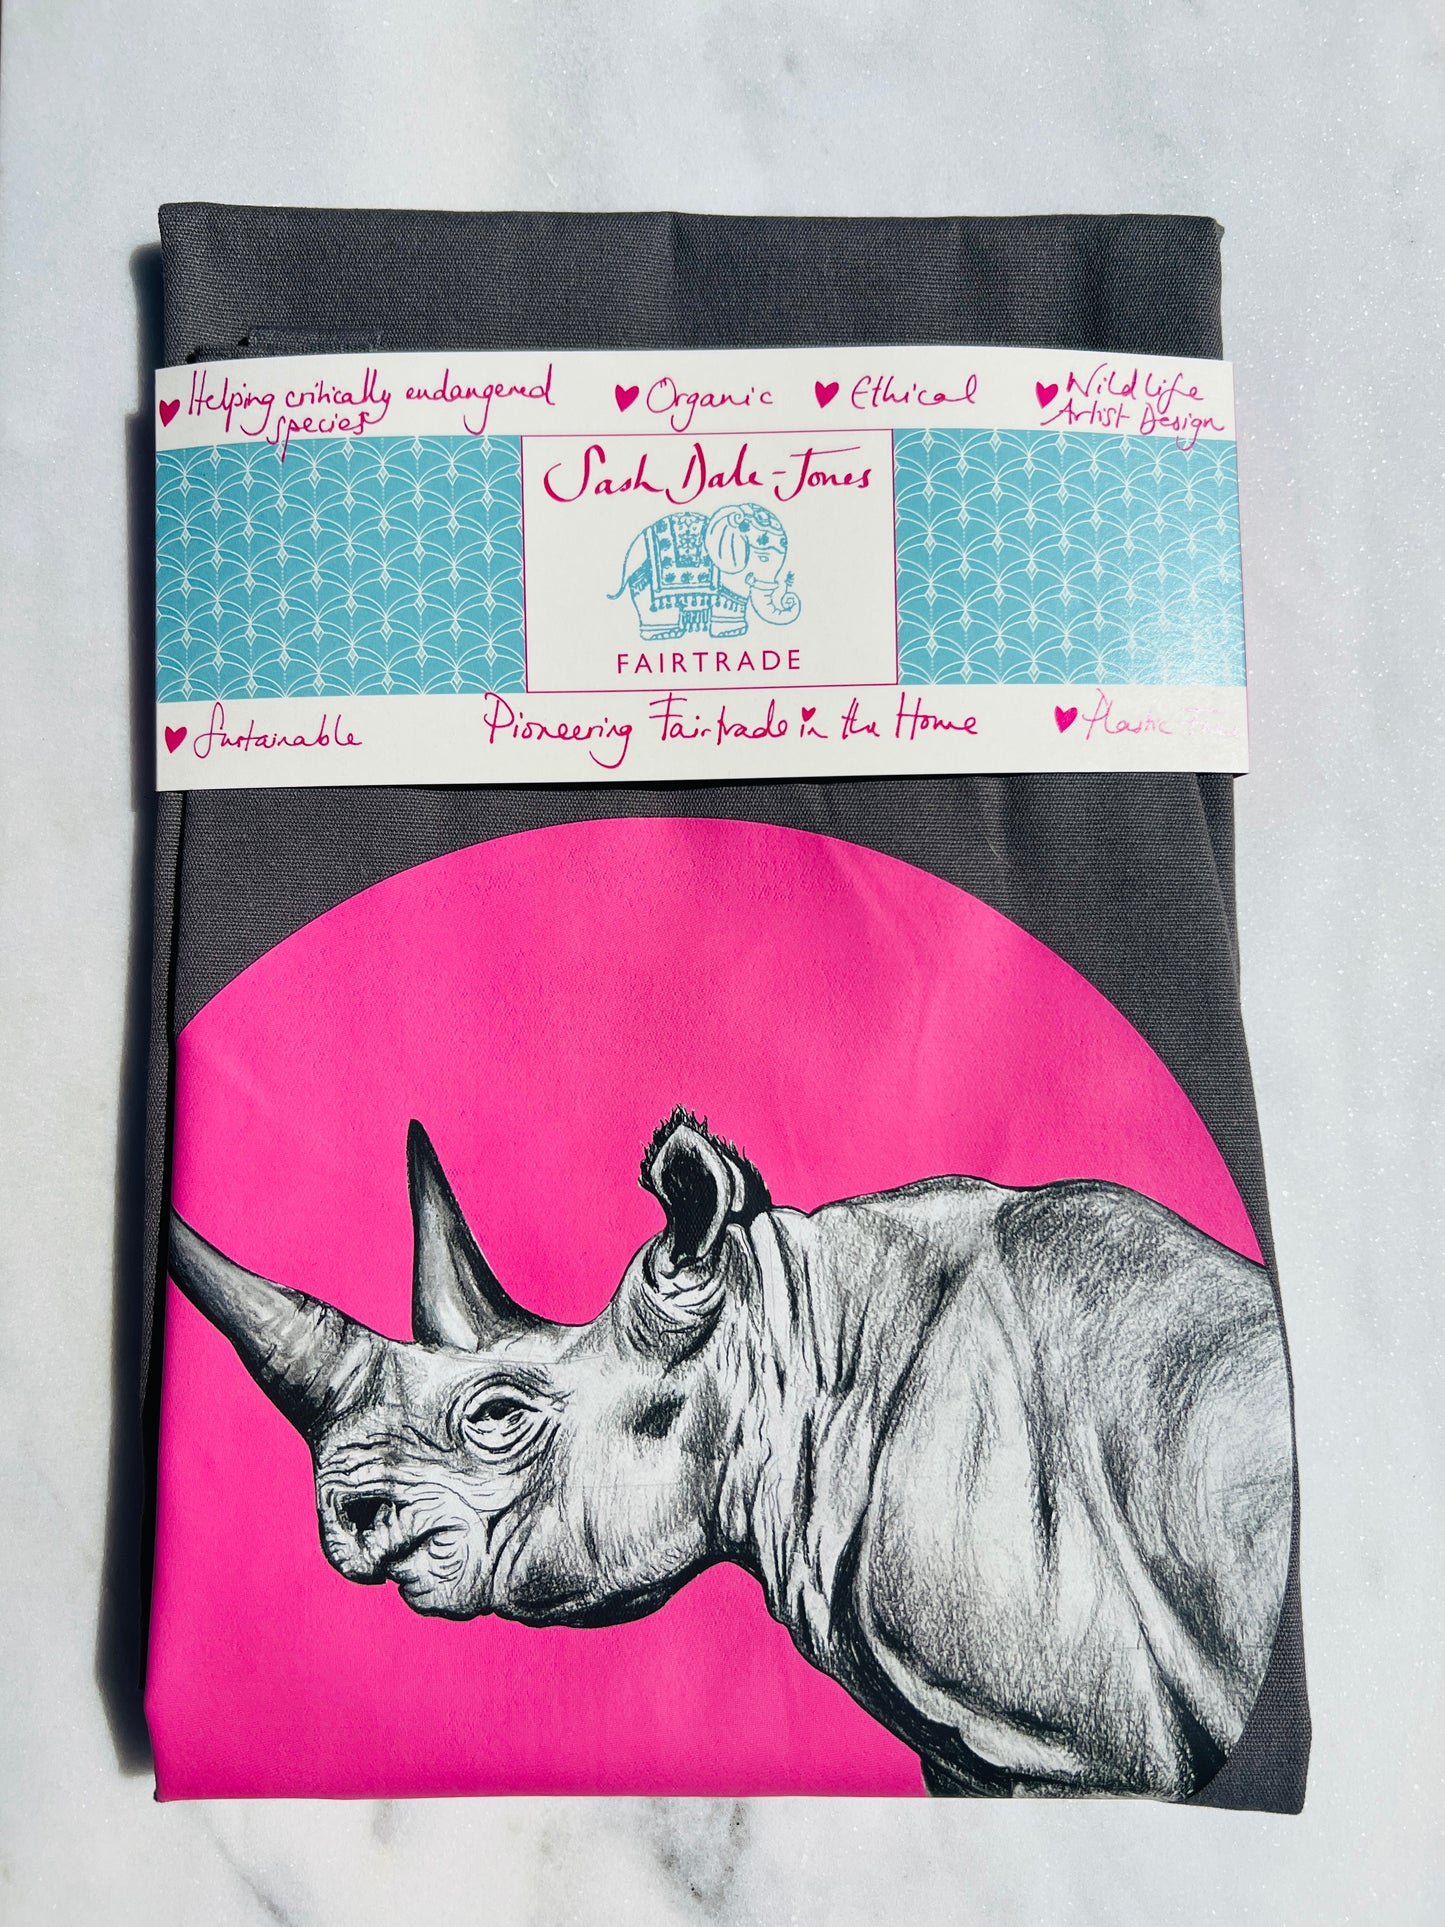 Helping critically endangered
species
Organic
Ethical
Wild life
Artist Design
Sash Dale-Jones
FAIRTRADE
Sustainable
Pioneering Fairtrade in the Home
Plastic Free